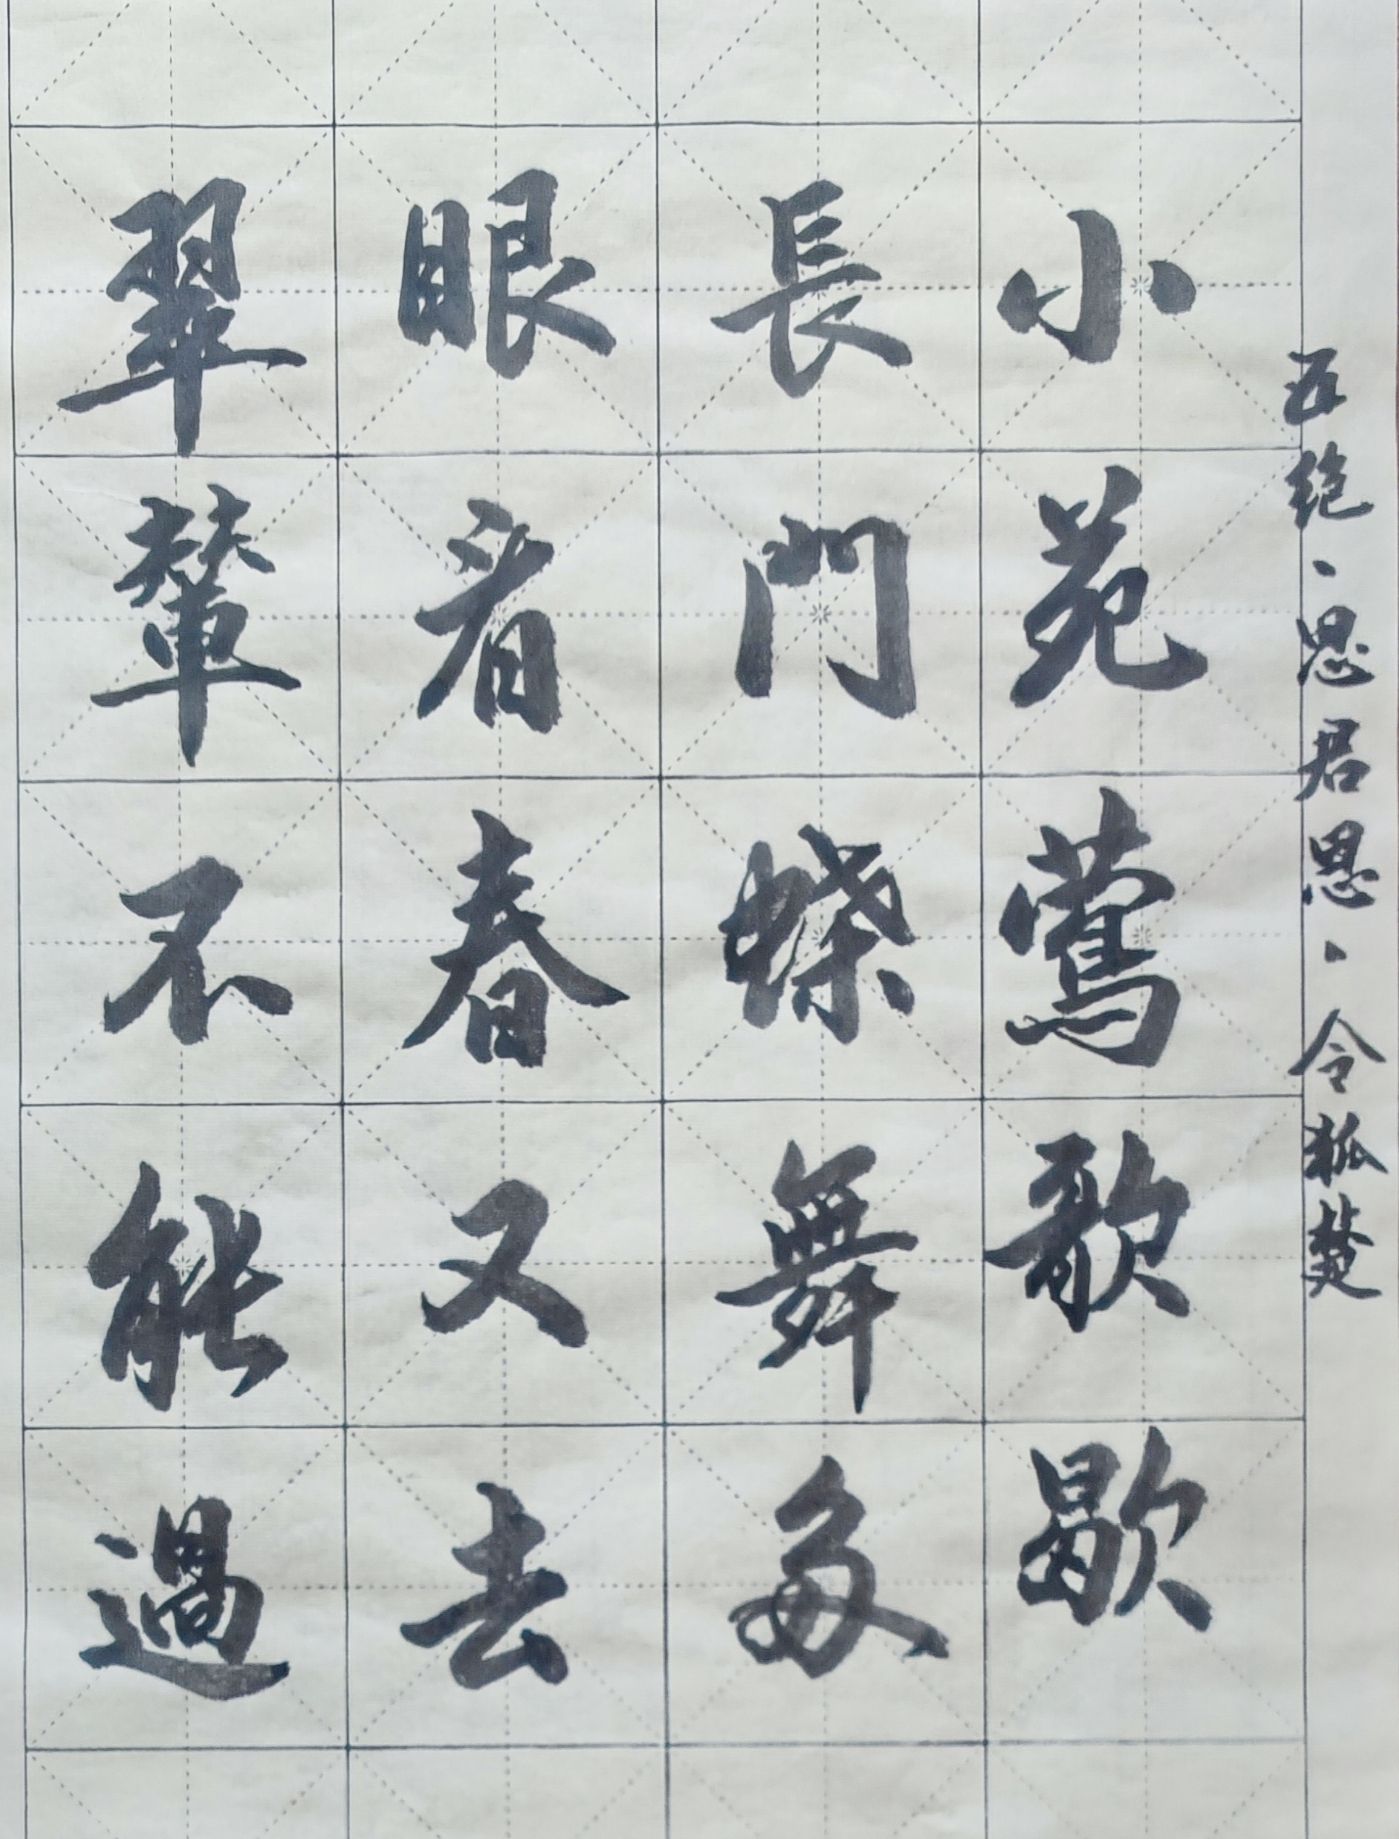 五绝、思君恩、令狐楚
小苑莺歌歇
長門蝶舞多
眼看春又去
翠輦不能過